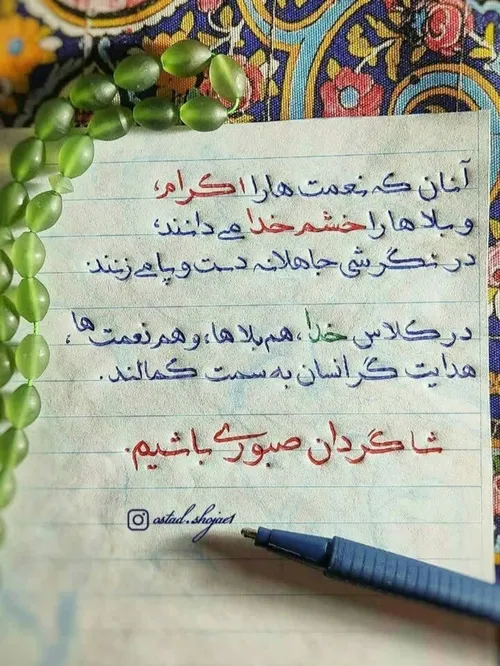 آنان که نعمت ها را اکرام،
و بلاها را خشم خدا می دانند،
در نگرشی جاهلانه دست و پا می زنند.
در کلاس خدا، هم بلاها، و هم نعمت ها،
هدایت گر انسان به سمت کمالند.
شاگردان صبوری باشیم.
ostad.shojae1